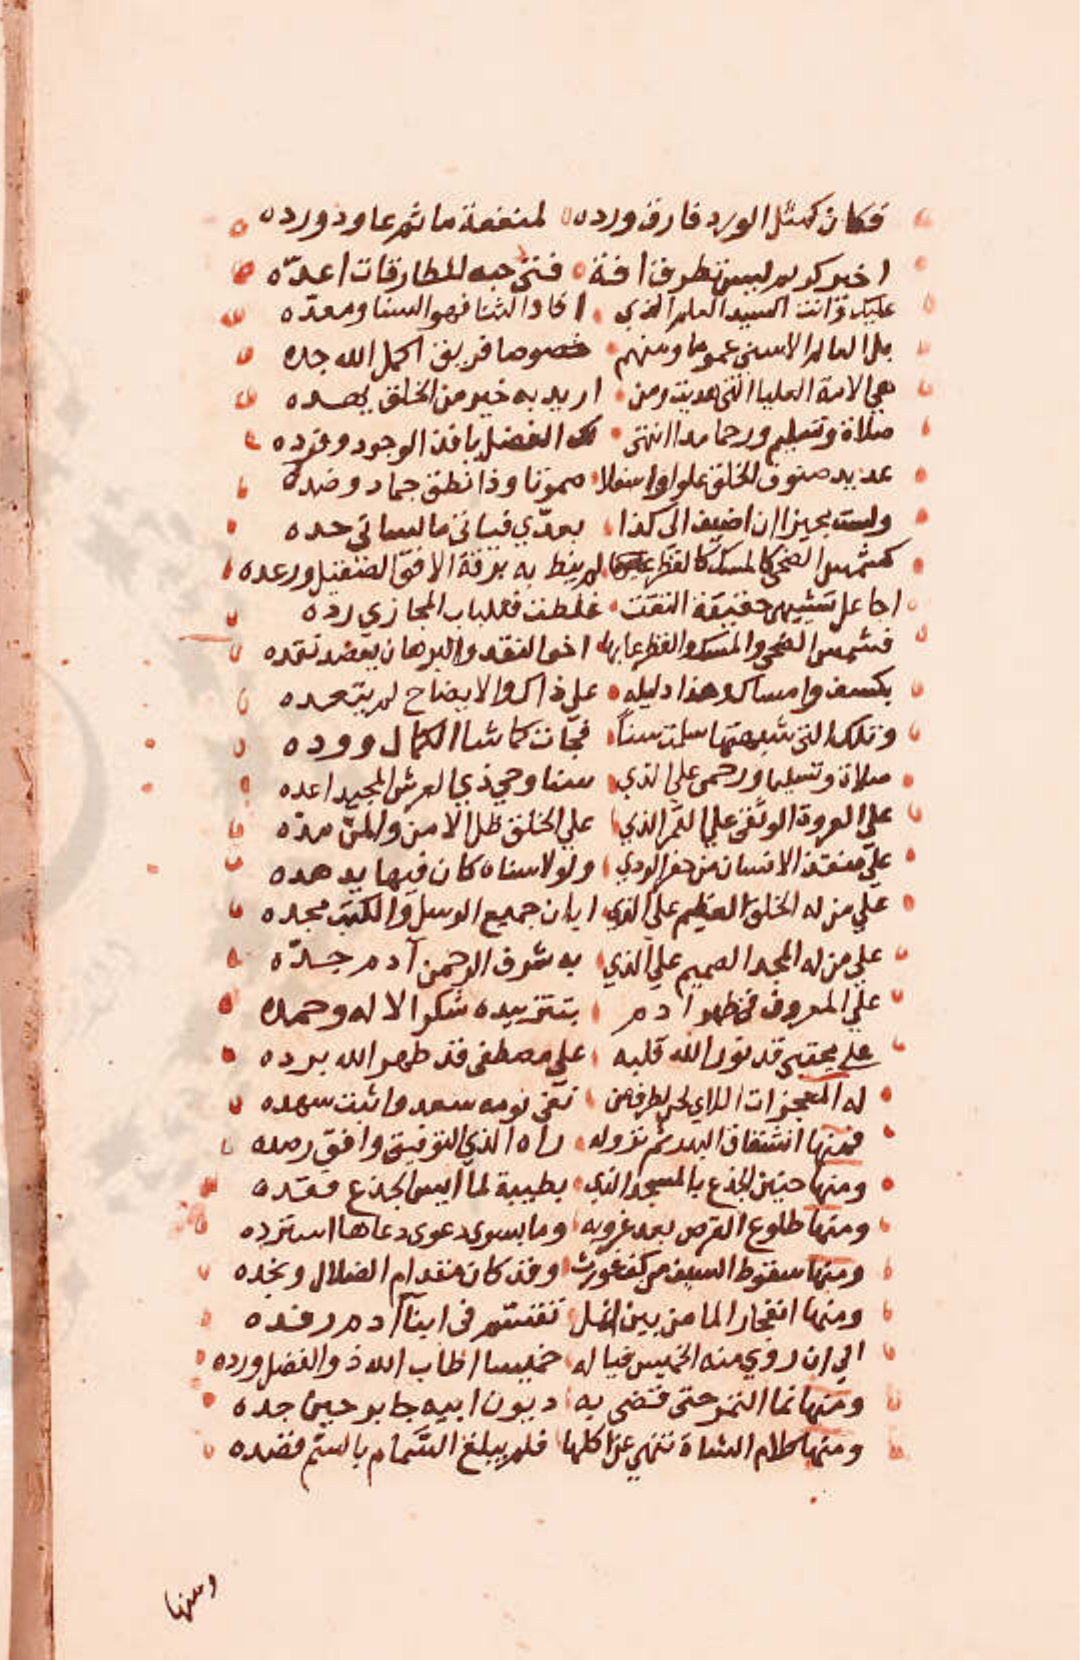 فكان كمثل الورد فارق ورده لمنفعة ما ثم عاود ورده
اخير كريم ليس تطرف افة فتى جبه للطارقات اعده
عليك وانت السيد العلم الذي افاد الثنا فهو السنا ومعده
بل العالم الاسنى عموما ومنهم خصوصا فريق اكمل الله جده
هي الامة العليا التي هديت ومن اريد به خير من الخلق يهده
صلاة وتسليم ورحما مدا انتهى لك الفضل يا فذ الوجود وفرده
عديد صنوف الخلق علوا واسفلا صموتا وذا نطق جماد وضده
ولست بجيز ان اضيف الى كذا بعدي فباني ما لساني حده
كشمس الضحى كالمسك كالقطر لم يفط به برقه الافق الصقيل ورعده
اجاعل تشبيهي حقيقة النفت غلطت فللباب المجازي رده
فشمس الضحى والمسك والقطر عابها اخو النقد والبرهان يعضد نقده
بكسف وامساك وهذا دليله على ذاك والايضاح لم يتعده
وتلك التي شبهتها سلمت سنا فجات كما شا الكمال ووده
صلاة وتسليما ورحمى على الذي سنا وحي ذي العرش المجيد اعده
على العروة الوثقى على الذي على الخلق ظل الامن والمن مده
على منقذ الانسان من حفر الردي ولولا سناه كان فيها يدهده
على من له الخلق العظيم على الذي ابان جميع الرسل والكتب مجده
على من له المجد الصميم على الذي به شرف الرحمن آدم جده
على المعروف في ظهر ادم بتزييده شكر الاله وحمده
على مجتبى قد نور الله قلبه على مصطفى قد طهر الله برده
له المعجزات اللاي لحن لطرف من نفى نومه سعد واثبت سهده
فمنها انشقاق البدر ثم نزوله راه الذي التوفيق وافق رصده
ومنها حنين الجذع بالمسجد الذي بطيبة لما ايس الجذع فقده
ومنها طلوع القرص بعد غروبه وما بسوى دعوى دعاها استرده
ومنها سقوط السيف من كف غورث وقد كان مقدام الضلال ونجده
ومنها انفجار الما من بين انمل تقسم في ابنا آدم رفده
الى ان روي منه الخميس فيا له خميسا اطاب الله ذ والفضل ورده
ومنها نما التمر حتى قضى به ديون ابيه جابر حين جده
ومنها كلام الشاة تنهي عن اكلها فلم يبلغ السمام بالسم قصده
ومنها